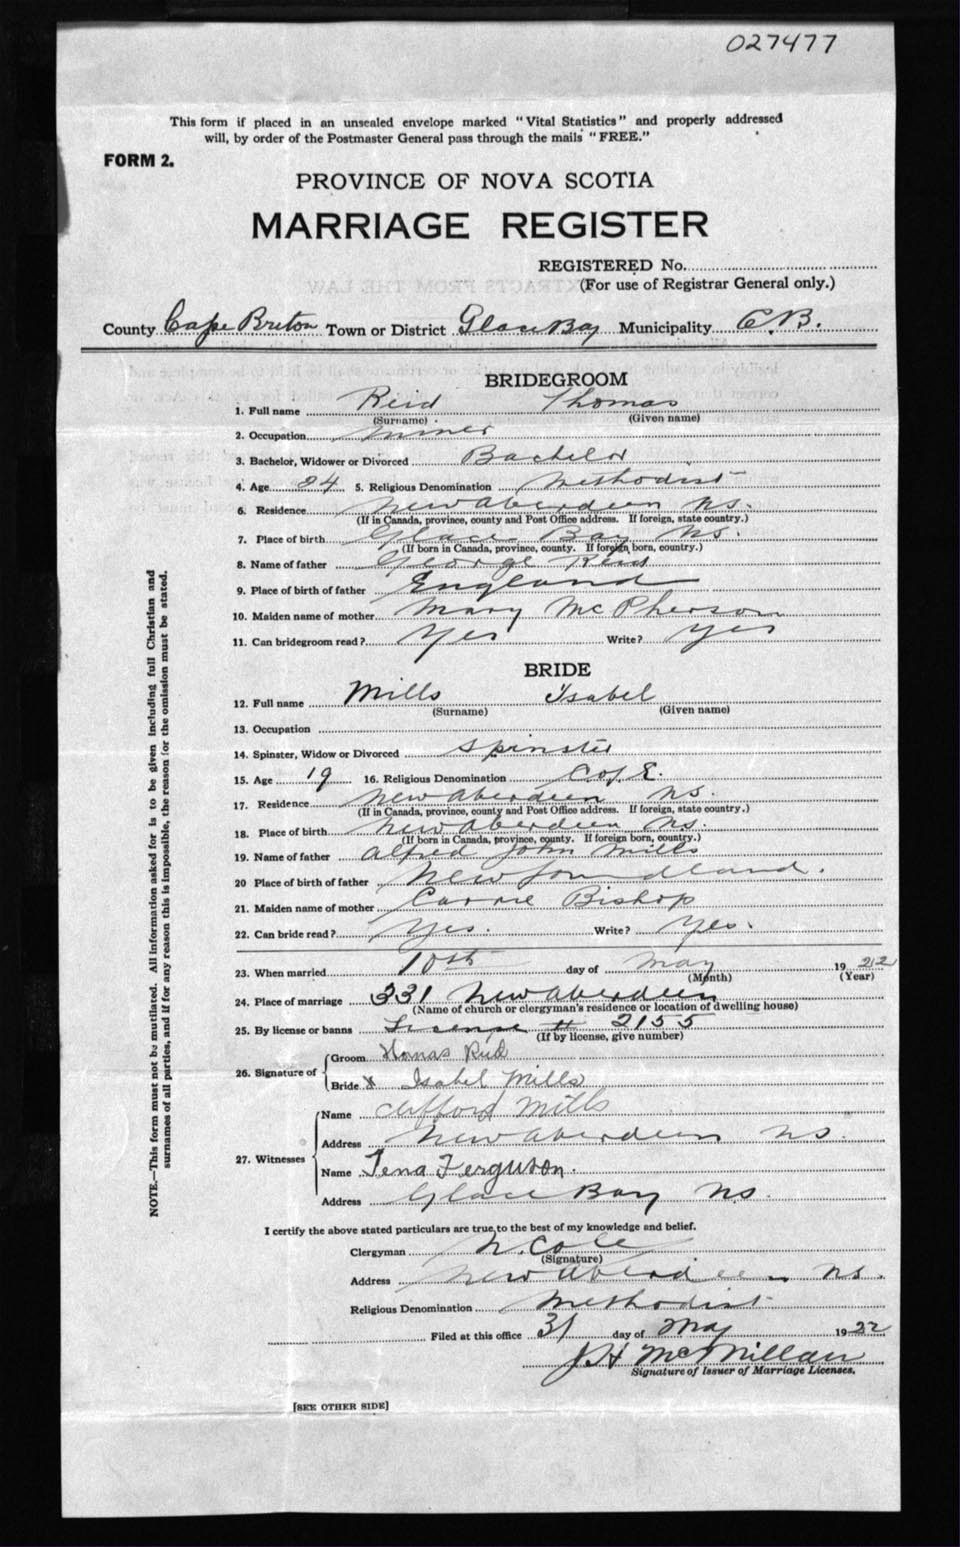 027477
This form if placed in an unsealed envelope marked "Vital Statistics" and properly addressed
will, by order of the Postmaster General pass through the mails "FREE."
FORM 2.
PROVINCE OF NOVA SCOTIA
MARRIAGE REGISTER
REGISTERED No.
(For use of Registrar General only.)
County Cape Breton Town or District Glace Bay Municipality C.B.
BRIDEGROOM
1. Full name Reid Thomas
(Surname) (Given name)
2. Occupation miner
3. Bachelor, Widower or Divorced Bachelor
4. Age 24 5. Religious Denomination Methodist
6. Residence New Aberdeen N.S.
(If in Canada, province, county and Post Office address. If foreign, state country.)
7. Place of birth Glace Bay N.S.
(If born in Canada, province, county. If foreign born, country.)
8. Name of father George Reid
9. Place of birth of father England
10. Maiden name of mother Mary McPherson
11. Can bridegroom read? Yes Write? Yes
BRIDE
12. Full name Mills Isabel
(Surname) (Given name)
13. Occupation
14. Spinster, Widow or Divorced Spinster
15. Age 19 16. Religious Denomination C of E.
17. Residence New Aberdeen N.S.
(If in Canada, province, county and Post Office address. If foreign, state country.)
18. Place of birth New Aberdeen N.S.
(If born in Canada, province, county. If foreign born, country.)
19. Name of father Alfred John Mills
20 Place of birth of father Newfoundland.
21. Maiden name of mother Carrie Bishop
22. Can bride read? Yes. Write? Yes.
23. When married 10th day of May 1922
(Month) (Year)
24. Place of marriage 331 New Aberdeen
(Name of church or clergyman's residence or location of dwelling house)
25. By license or banns License # 2155
(If by license, give number)
26. Signature of Groom Thomas Reid
Bride x Isabel Mills
27. Witnesses Name Clifford Mills
Address New Aberdeen N.S.
Name Tena Ferguson.
Address Glace Bay N.S.
I certify the above stated particulars are true to the best of my knowledge and belief.
Clergyman N. Cole
(Signature)
Address New Aberdeen N.S.
Religious Denomination Methodist
Filed at this office 31 day of May 1922
J H McMillan
Signature of Issuer of Marriage Licenses.
[SEE OTHER SIDE]
NOTE.—This form must not be mutilated. All information asked for is to be given including full Christian and
surnames of all parties, and if for any reason this is impossible, the reason for the omission must be stated.